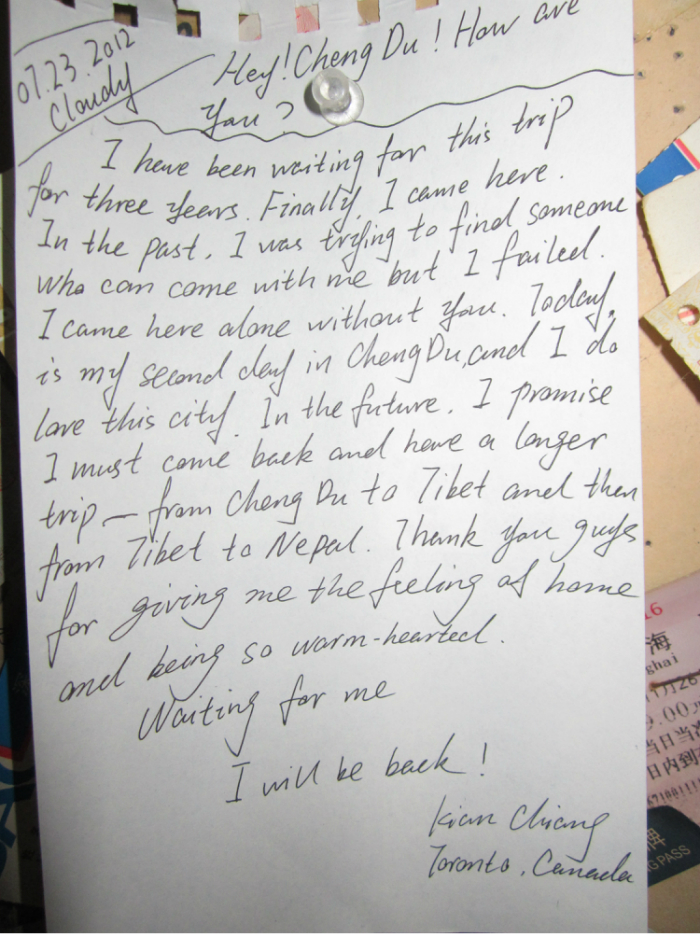 07.23.2012
Cloudy
Hey! Cheng Du! How are
You?
I have been waiting for this trip
for three years. Finally, I came here.
In the past, I was trying to find someone
who can come with me but I failed.
I came here alone without you. Today,
is my second day in ChengDu, and I do
love this city. In the future, I promise
I must come back and have a longer
trip — from Cheng Du to Tibet and then
from Tibet to Nepal. Thank you guys
for giving me the feeling of home
and being so warm-hearted.
Waiting for me
I will be back!
Kian Chiang
Toronto, Canada
16
海
ghai
月26
9.00
当日当次
日内到
牌
GPASS